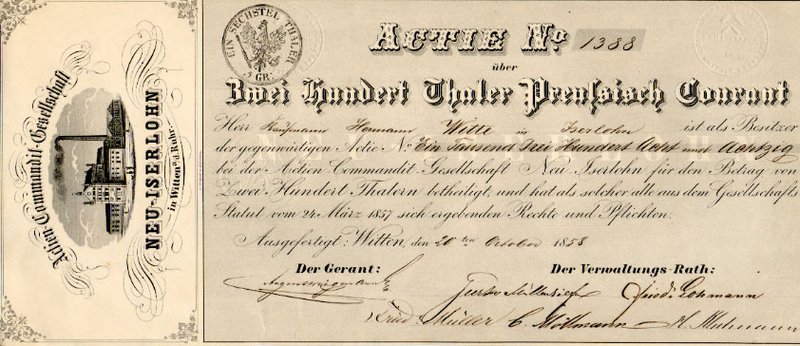 Actien Commandit-Gesellschaft
NEU-ISERLOHN
in Witten a/d Ruhr.
EIN SECHSTEL THALER
5 GR
ACTIE No. 1388
über
Zwei Hundert Thaler Preußisch Courant
Herr Kaufmann Hermann Witte in Iserlohn ist als Besitzer
der gegenwärtigen Actie No. Ein Tausend drei Hundert Acht und Achtzig
bei der Actien Commandit-Gesellschaft Neu-Iserlohn für den Betrag von
Zwei Hundert Thalern betheiligt, und hat als solcher alle aus dem Gesellschafts
Statut vom 24. März 1857 sich ergebenden Rechte und Pflichten.
Ausgefertigt: Witten, den 20ten October 1858
Der Gerant: Der Verwaltungs-Rath:
Lohmann
Müller C. Möllmann H.